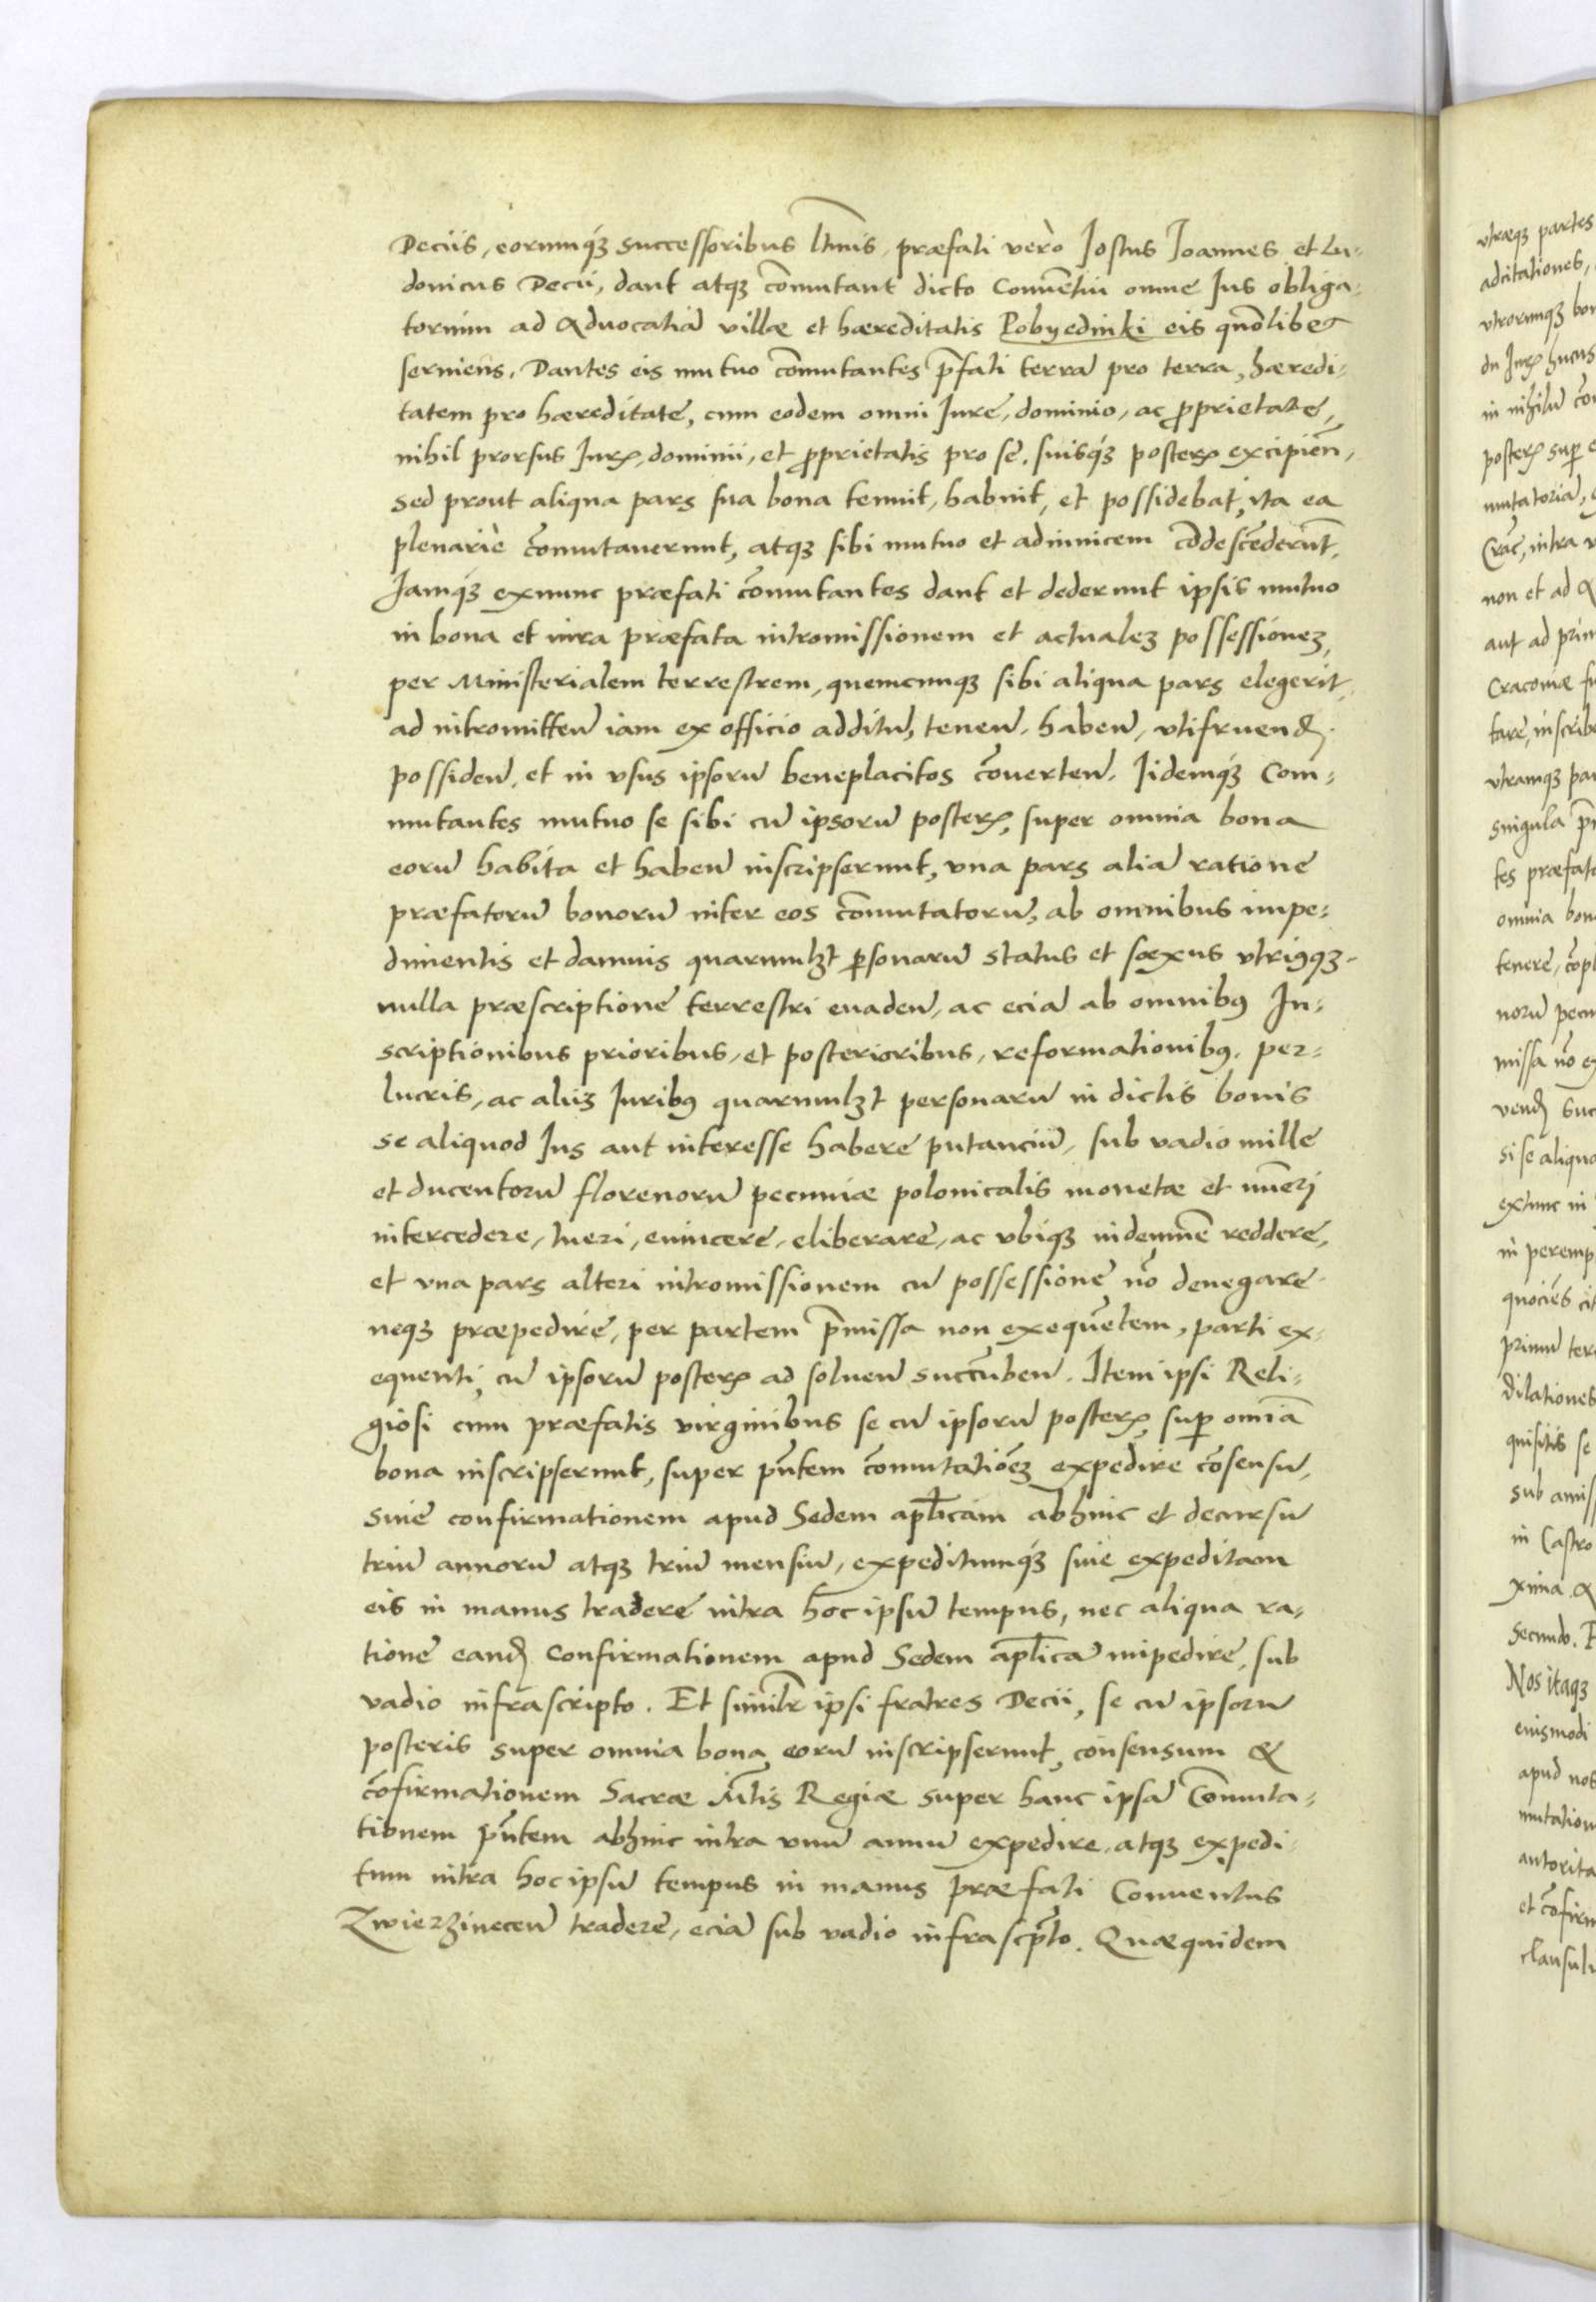 Deciis, eorumq́ꝫ successoribus ltimis, præfati verò Jostus Joannes et Lu-
douicus Decii, dant atqꝫ cōmutant dicto Conuētui omne Jus obliga-
torium ad Aduocatiā villæ et hæreditatis Pobyedniki eis quōlibet
seruiens. Dantes eis mutuo cōmutantes p̄fati terrā pro terra, hæredi-
tatem pro hæreditate, cum eodem omni Jure, dominio, ac ꝓprietate,
nihil prorsus Jurꝭ, dominii, et ꝓprietatis pro se, suisq́ꝫ posterꝭ excipieñ,
sed prout aliqua pars sua bona tenuit, habuit, et possidebat, ita ea
plenariè cōmutauerunt, atqꝫ sibi mutuo et adinuicem cōdescēderūt.
Jamq́ꝫ exnunc præfati cōmutantes dant et dederunt ipsis mutuo
in bona et iura præfata intromissionem et actualeꝫ possessioneꝫ,
per Ministerialem terrestrem, quemcunqꝫ sibi aliqua pars elegerit,
ad intromitteñ iam ex officio additū, teneñ, habeñ, vtifruend̃.
possideñ, et in vsus ipsorū beneplacitos cōuerteñ. Jidemq́ꝫ Com-
mutantes mutuo se sibi cū ipsorū posterꝭ, super omnia bona
eorū habita et habeñ inscripserunt, vna pars aliā ratione
præfatorū bonorū inter eos cōmutatorū, ab omnibus impe-
dimentis et damnis quarumlꝫt ꝑsonarū status et sexus vtriꝰqꝫ.
nulla præscriptione terrestri euadeñ, ac eciā ab omnibꝰ In-
scriptionibus prioribus, et posterioribus, reformationibꝰ, per-
lucris, ac aliiꝫ Juribꝰ quarumlꝫt personarū in dictis bonis
se aliquod Jus aut interesse habere putanciū, sub vadio mille
et ducentorū florenorū pecuniæ polonicalis monetæ et nūeri
intercedere, tueri, euincere, eliberare, ac vbiqꝫ indemnē reddere,
et vna pars alteri intromissionem cū possessione nō denegare
neqꝫ præpedire, per partem p̄missa non exequētem, parti ex-
equenti, cū ipsorū posterꝭ ad solueñ succūbeñ. Item ipsi Reli-
giosi cum præfatis virginibus se cū ipsorū posterꝭ, suꝑ omīa
bona inscripserunt, super pñtem cōmutatiōeꝫ expedire cōsensū,
siue confirmationem apud Sedem aplicam abhinc et decursu
triū annorū atqꝫ triū mensiū, expeditumq́ꝫ siue expeditam
eis in manus tradere intra hoc ipsū tempus, nec aliqua ra-
tione eand̃ confirmationem apud Sedem aplicā impedire, sub
vadio infrascripto. Et similr ipsi fratres Decii, se cū ipsorū
posteris super omnia bona eorū inscripserunt, consensum &
cōfirmationem Sacræ Mtis Regiæ super hanc ipsā Cōmuta-
tionem pñtem abhinc intra vnū annū expedire, atqꝫ expedi-
tum intra hoc ipsū tempus in manus præfati Conuentus
Zwierzineceñ tradere, eciā sub vadio infrascp̄to. Quæquidem
vtræqꝫ partes
adcitationes,
in nihilū
mutatoriā,
non et ad
Cracouiæ
vtramqꝫ
singula
tes præfat
omnia bon
tenere,
norū pecu
missa nō
si se aliqu
extunc in
in peremp
primū ter
dilationes
quisitis se
sub amiss
in Castro
Secundo.
Nos itaqꝫ
apud nos
mutation
autorita
clausul